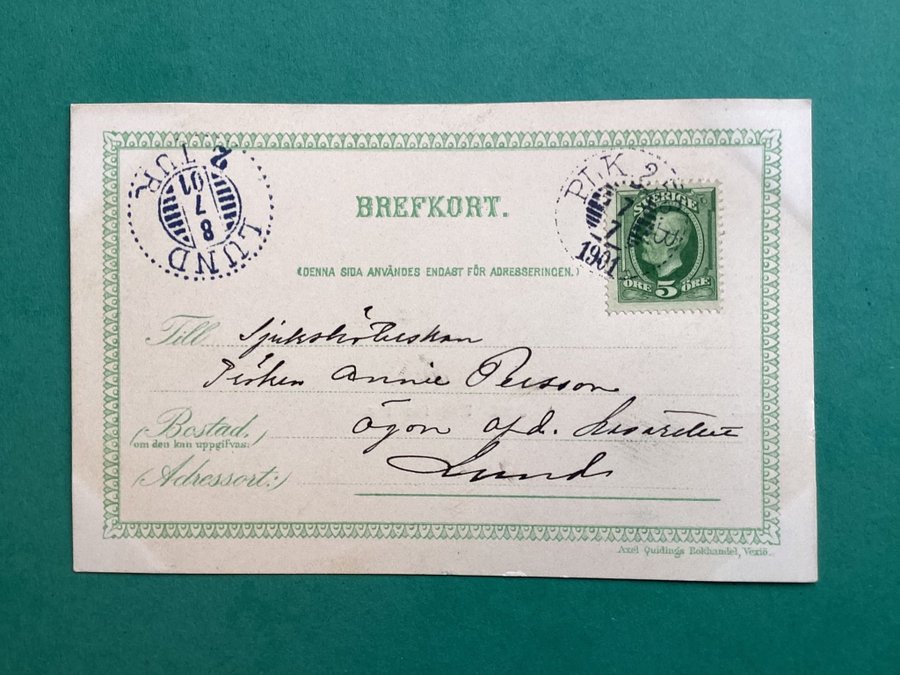 2 TUR
01
7
8
LUND
PLK 2
7
7
1901
SVERIGE
ÖRE 5 ÖRE
BREFKORT.
(DENNA SIDA ANVÄNDES ENDAST FÖR ADRESSERINGEN.)
Till Sjuksköterskan
Fröken Annie Persson
(Bostad,)
om den kan uppgifvas:
Ögon afd. Lasarettet
(Adressort:)
Lund
Axel Quidings Bokhandel, Vexiö.